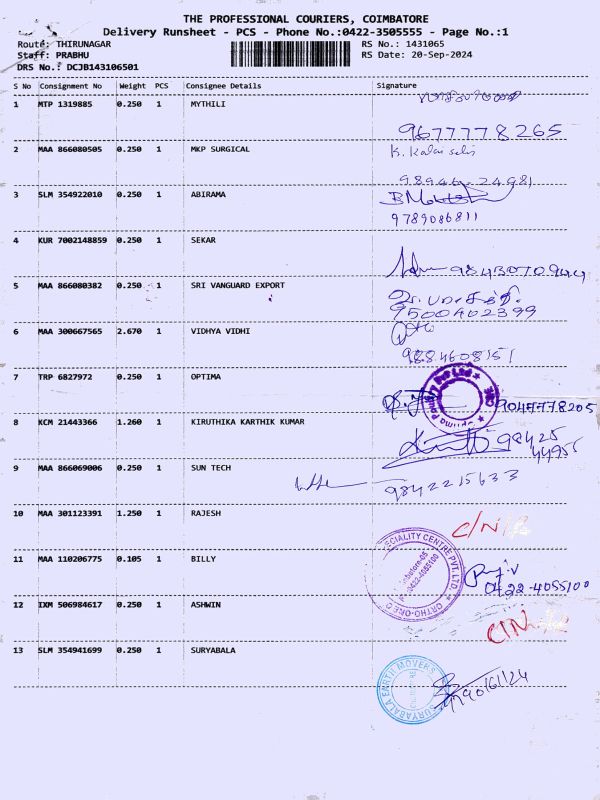 THE PROFESSIONAL COURIERS, COIMBATORE
Delivery Runsheet - PCS - Phone No.:0422-3505555 - Page No.:1
Route: THIRUNAGAR RS No.: 1431065
Staff: PRABHU RS Date: 20-Sep-2024
DRS No.: DCJB143106501
S No Consignment No Weight PCS Consignee Details Signature
1 MTP 1319885 0.250 1 MYTHILI
9677778265
2 MAA 866080505 0.250 1 MKP SURGICAL K. Kalai selvi
98946 24981
3 SLM 354922010 0.250 1 ABIRAMA
9789086811
4 KUR 7002148859 0.250 1 SEKAR
5 MAA 866080382 0.250 1 SRI VANGUARD EXPORT
9500402399
6 MAA 300667565 2.670 1 VIDHYA VIDHI
9884608151
7 TRP 6827972 0.250 1 OPTIMA
8 KCM 21443366 1.260 1 KIRUTHIKA KARTHIK KUMAR
98425
44955
9 MAA 866069006 0.250 1 SUN TECH
9842215633
10 MAA 301123391 1.250 1 RAJESH
C/N/R
11 MAA 110206775 0.105 1 BILLY
SPECIALITY CENTRE PVT. LTD.
ORTHO-ONE
0422-4055100
0422-4055100
12 IXM 506984617 0.250 1 ASHWIN
13 SLM 354941699 0.250 1 SURYABALA
SURYABALA EARTH MOVERS